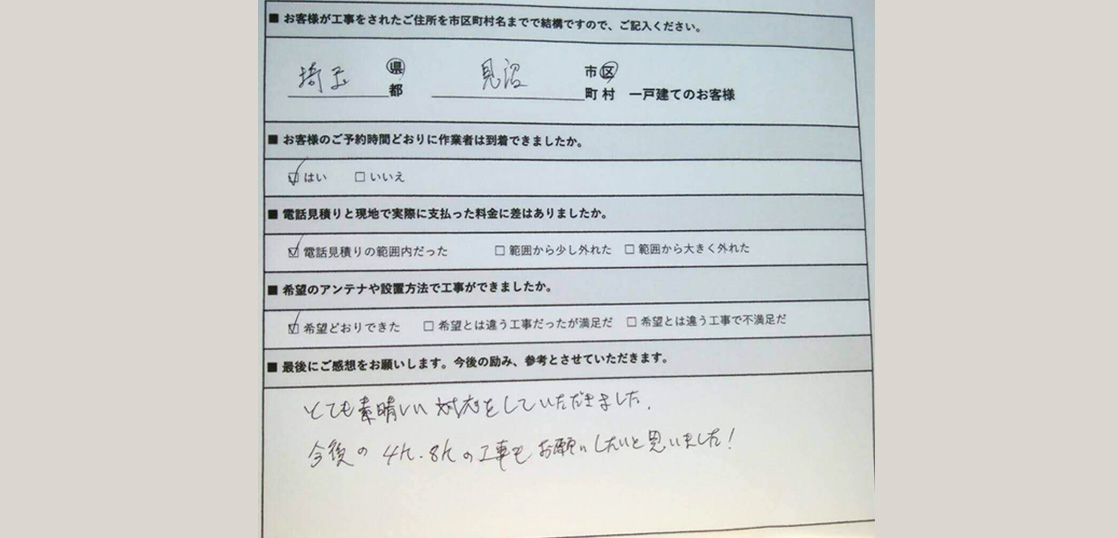 ■ お客様が工事をされたご住所を市区町村名までで結構ですので、ご記入ください。
埼玉 県 見沼 市 区
都 町 村 一戸建てのお客様
■ お客様のご予約時間どおりに作業者は到着できましたか。
☑ はい □ いいえ
■ 電話見積りと現地で実際に支払った料金に差はありましたか。
☑ 電話見積りの範囲内だった □ 範囲から少し外れた □ 範囲から大きく外れた
■ 希望のアンテナや設置方法で工事ができましたか。
☑ 希望どおりできた □ 希望とは違う工事だったが満足だ □ 希望とは違う工事で不満足だ
■ 最後にご感想をお願いします。今後の励み、参考とさせていただきます。
とても素晴しい対応をしていただきました.
今後の4K.8Kの工事もお願いしたいと思いました!